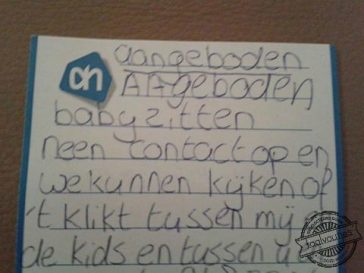 aangeboden
ah
AAngeboden
babyzitten
neen contact op en
we kunnen kijken of
't klikt tussen mij
de kids en tussen u
taalvoutjes